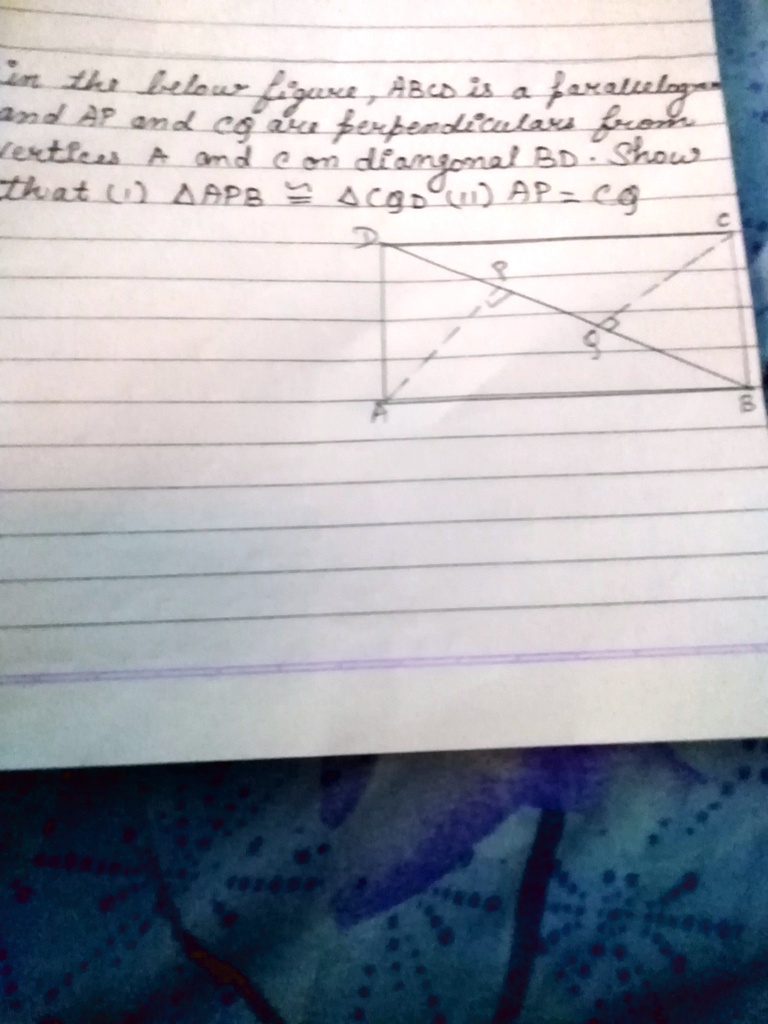 in the below figure, ABCD is a parallelogram
and AP and CQ are perpendiculars from
vertices A and C on diangonal BD. Show
that (i) △APB ≅ △CQD (ii) AP = CQ
D
C
P
Q
A
B